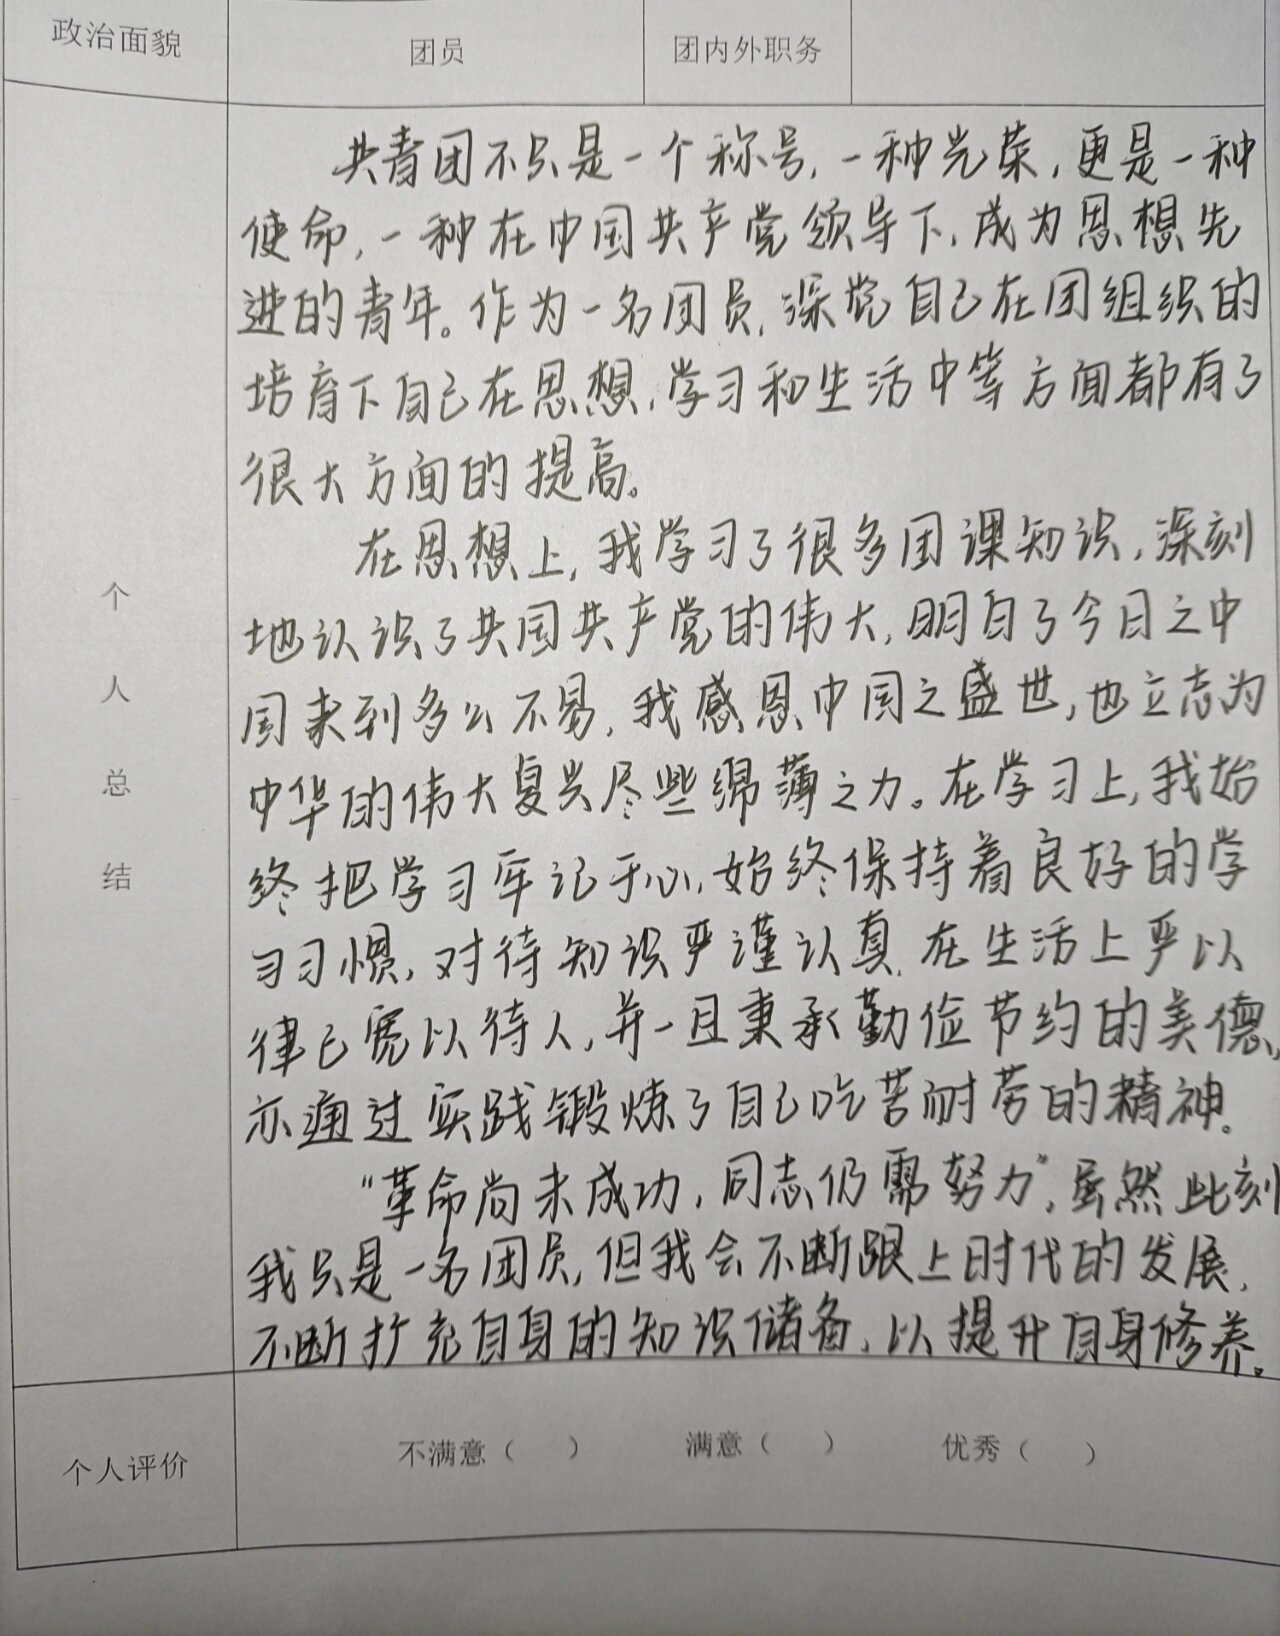 政治面貌 团员 团内外职务
共青团不只是一个称号,一种光荣,更是一种
使命,一种在中国共产党领导下,成为思想先
进的青年。作为一名团员,深觉自己在团组织的
培育下自己在思想,学习和生活中等方面都有了
很大方面的提高。
在思想上,我学习了很多团课知识,深刻
地认识了共国共产党的伟大,明白了今日之中
国来到多么不易,我感恩中国之盛世,也立志为
中华的伟大复兴尽些绵薄之力。在学习上,我始
终把学习牢记于心,始终保持着良好的学
习习惯,对待知识严谨认真,在生活上严以
律己宽以待人,并一且秉承勤俭节约的美德,
亦通过实践锻炼了自己吃苦耐劳的精神。
“革命尚未成功,同志仍需努力”,虽然此刻
我只是一名团员,但我会不断跟上时代的发展,
不断扩充自身的知识储备,以提升自身修养。
个
人
总
结
个人评价 不满意( ) 满意( ) 优秀( )